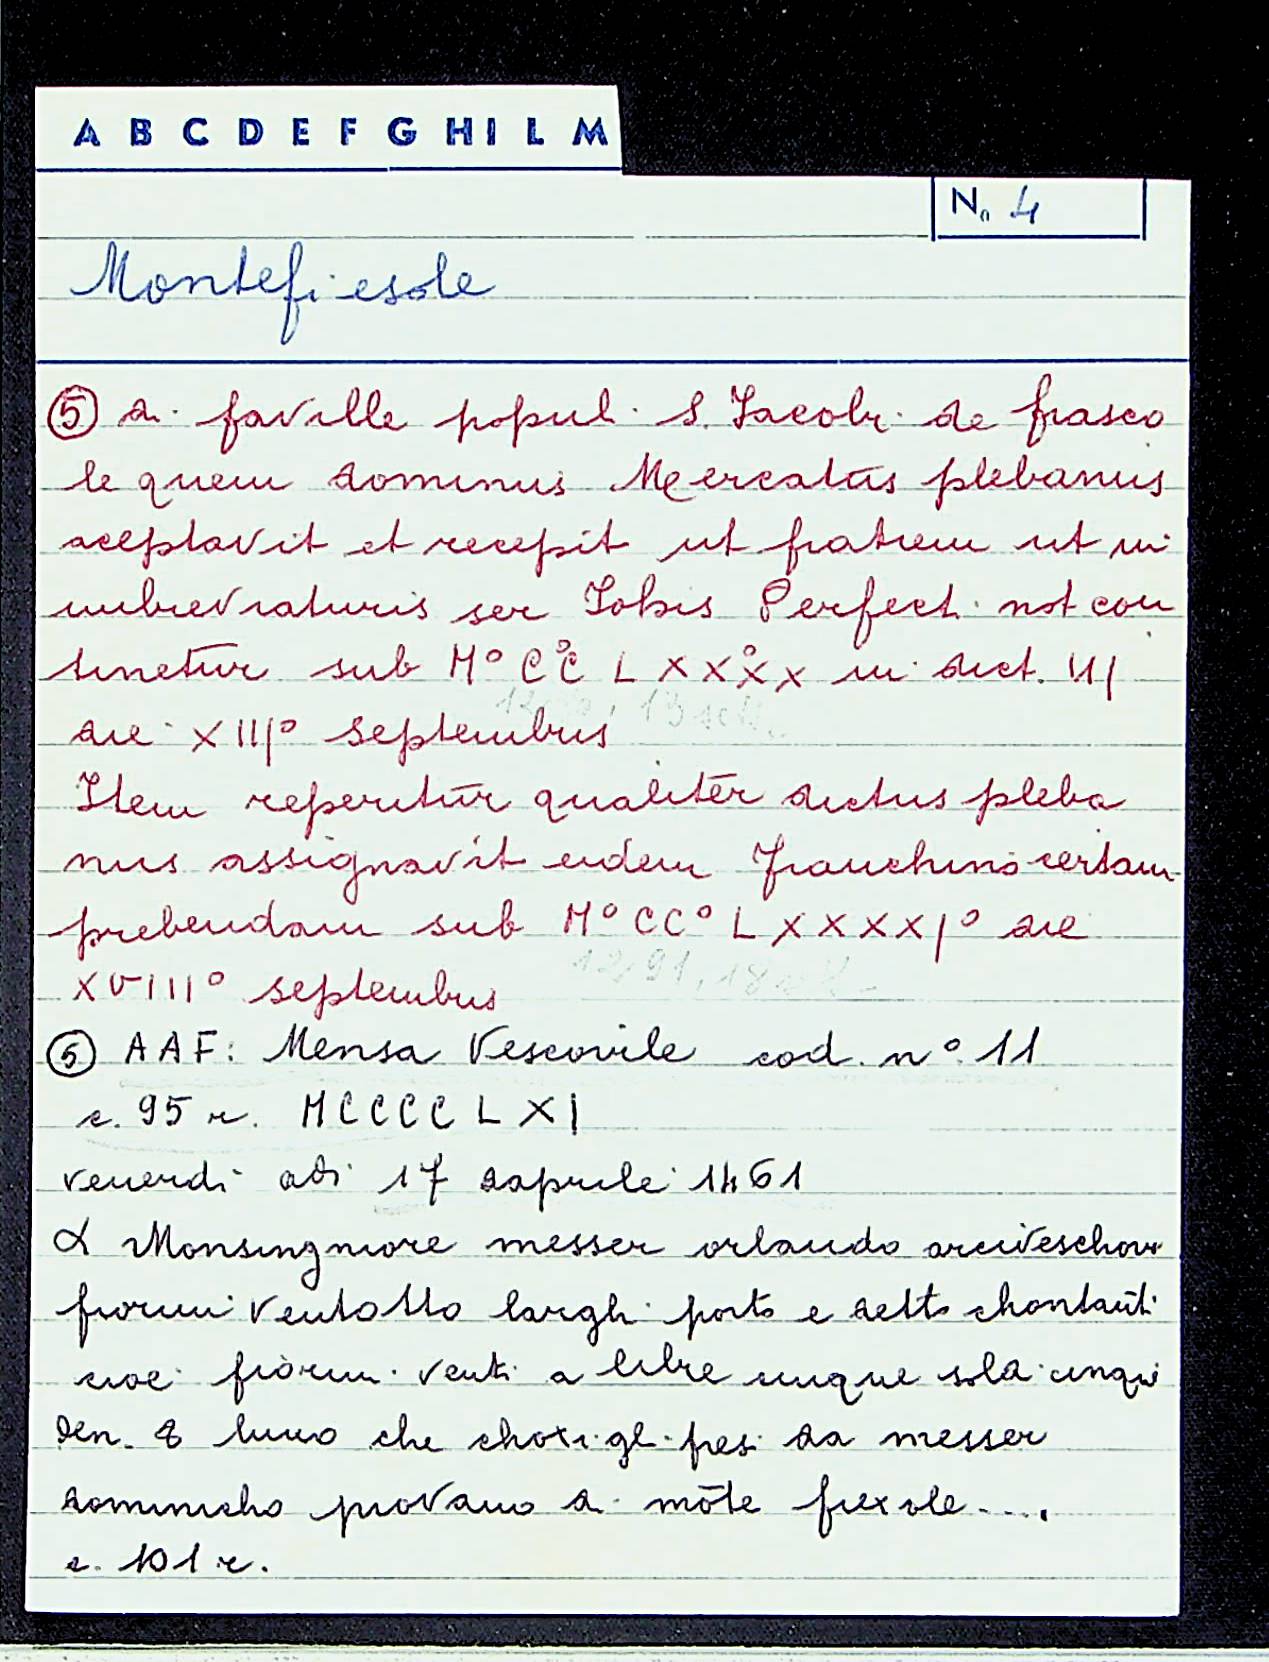 A B C D E F G H I L M
N. 4
Montefiesole
⑤ di faville popul. S. Iacobi de frasco
le quem dominus Mercatūs plebanus
aceptavit et recepit ut fratrem ut in
imbreviaturis ser Iohis Perfect. not con
tinetur sub M° CC° LXXXX° in dict. III
die XIII° septembris
1290, 13 sett.
Item reperitūr qualitēr dictus pleba
nus assignavit eidem franchino certam
prebendam sub M° CC° LXXXXI° die
1291, 18 sett.
XVIII° septembris
⑤ AAF: Mensa Vescovile cod. n° 11
c. 95 r. MCCCCLXI
venerdi adi 17 daprile 1461
A Monsingniore messer orlando arciveschovo
fiorini ventotto largh. porto e detto chontāti
cioe fiorin. venti a libre cinque sold. cinqui
den. 8 luno che choxi gl. pres. da messer
domenicho piovano di mōte fiexole....
c. 101 r.